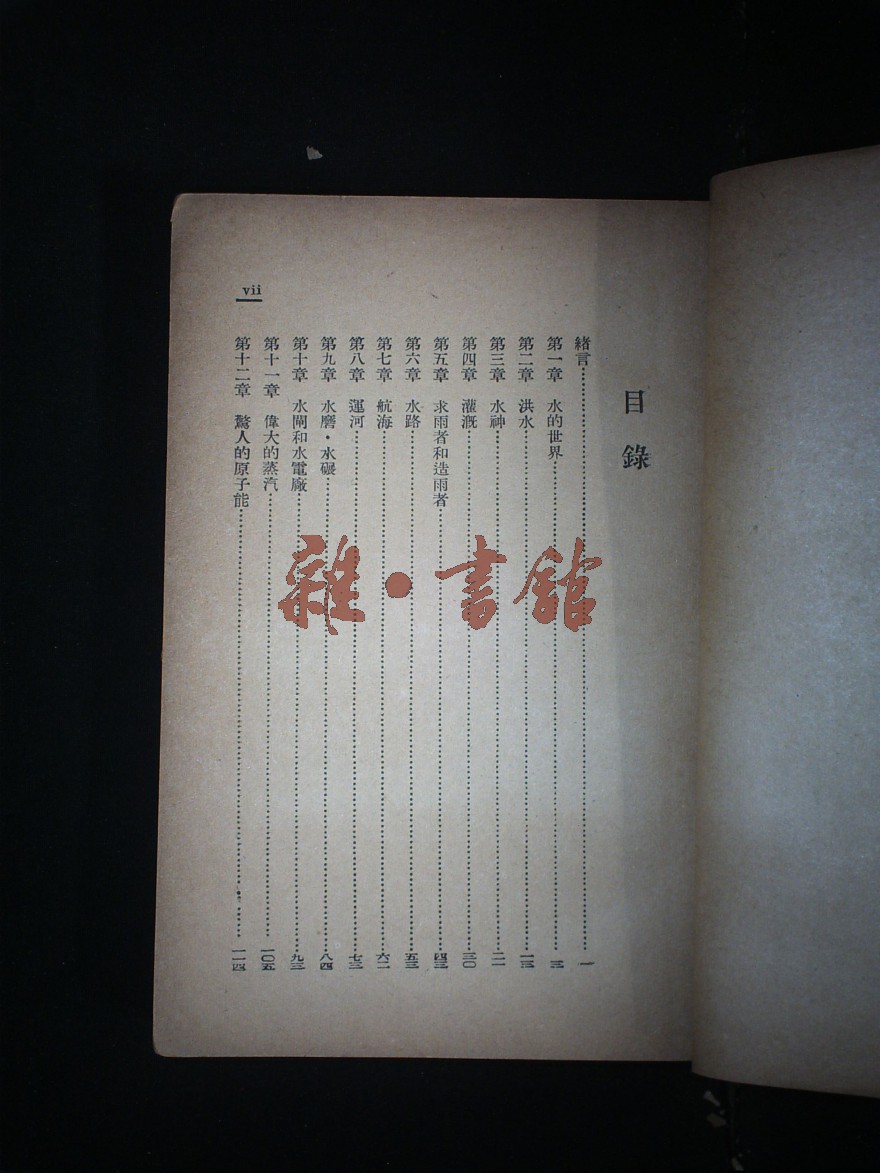 目錄
緒言…………一
第一章 水的世界…………三
第二章 洪水…………一三
第三章 水神…………二一
第四章 灌溉…………三〇
第五章 求雨者和造雨者…………四三
第六章 水路…………五三
第七章 航海…………六二
第八章 運河…………七三
第九章 水磨·水碾…………八四
第十章 水閘和水電廠…………九三
第十一章 偉大的蒸汽…………一〇五
第十二章 驚人的原子能…………一一四
vii
雜·書館